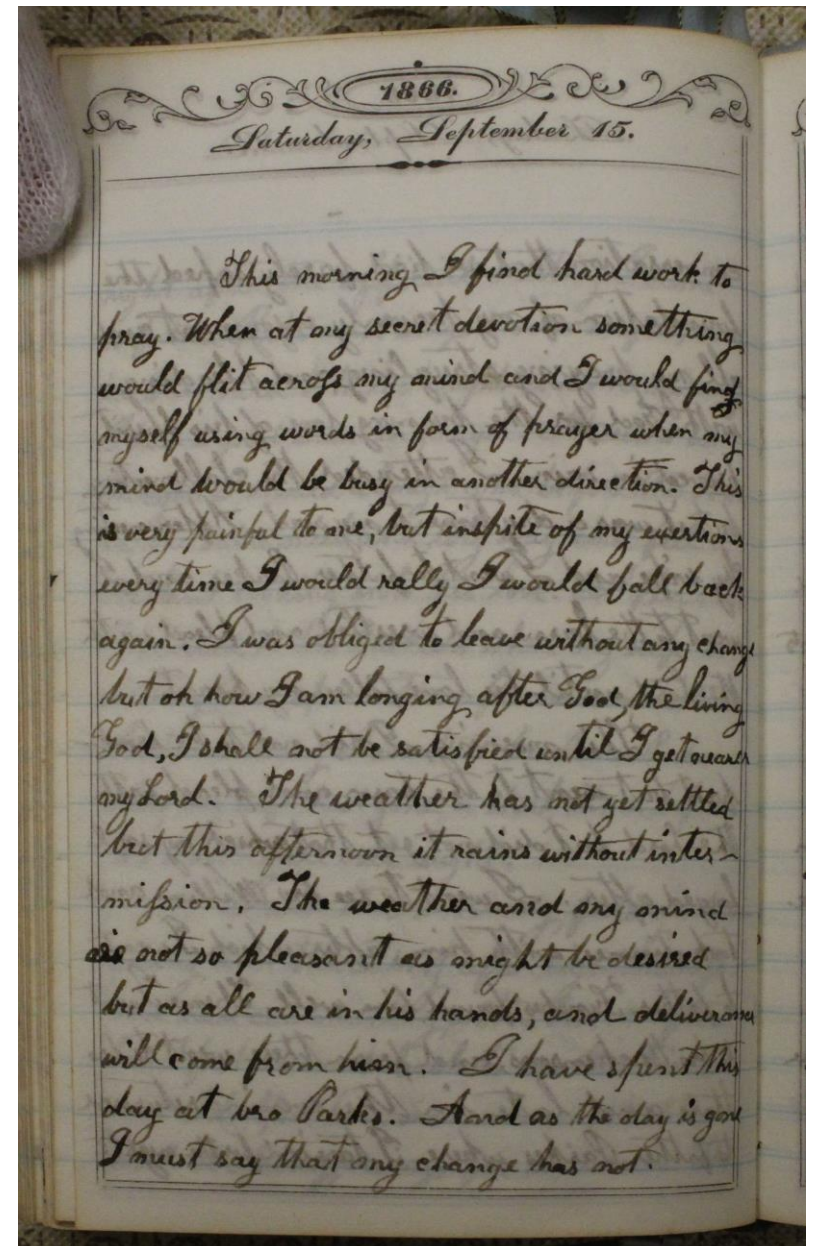 1866.
Saturday, September 15.
This morning I find hard work to
pray. When at my secret devotion something
would flit across my mind and I would find
myself using words in form of prayer when my
mind would be busy in another direction. This
is very painful to me, but inspite of my exertions
every time I would rally I would fall back
again. I was obliged to leave without any change
but oh how I am longing after God, the living
God, I shall not be satisfied until I get nearer
my Lord. The weather has not yet settled
but this afternoon it rains without inter-
mission. The weather and my mind
are not so pleasant as might be desired
but as all are in his hands, and deliverance
will come from him. I have spent this
day at bro Parks. And as the day is gone
I must say that my change has not.